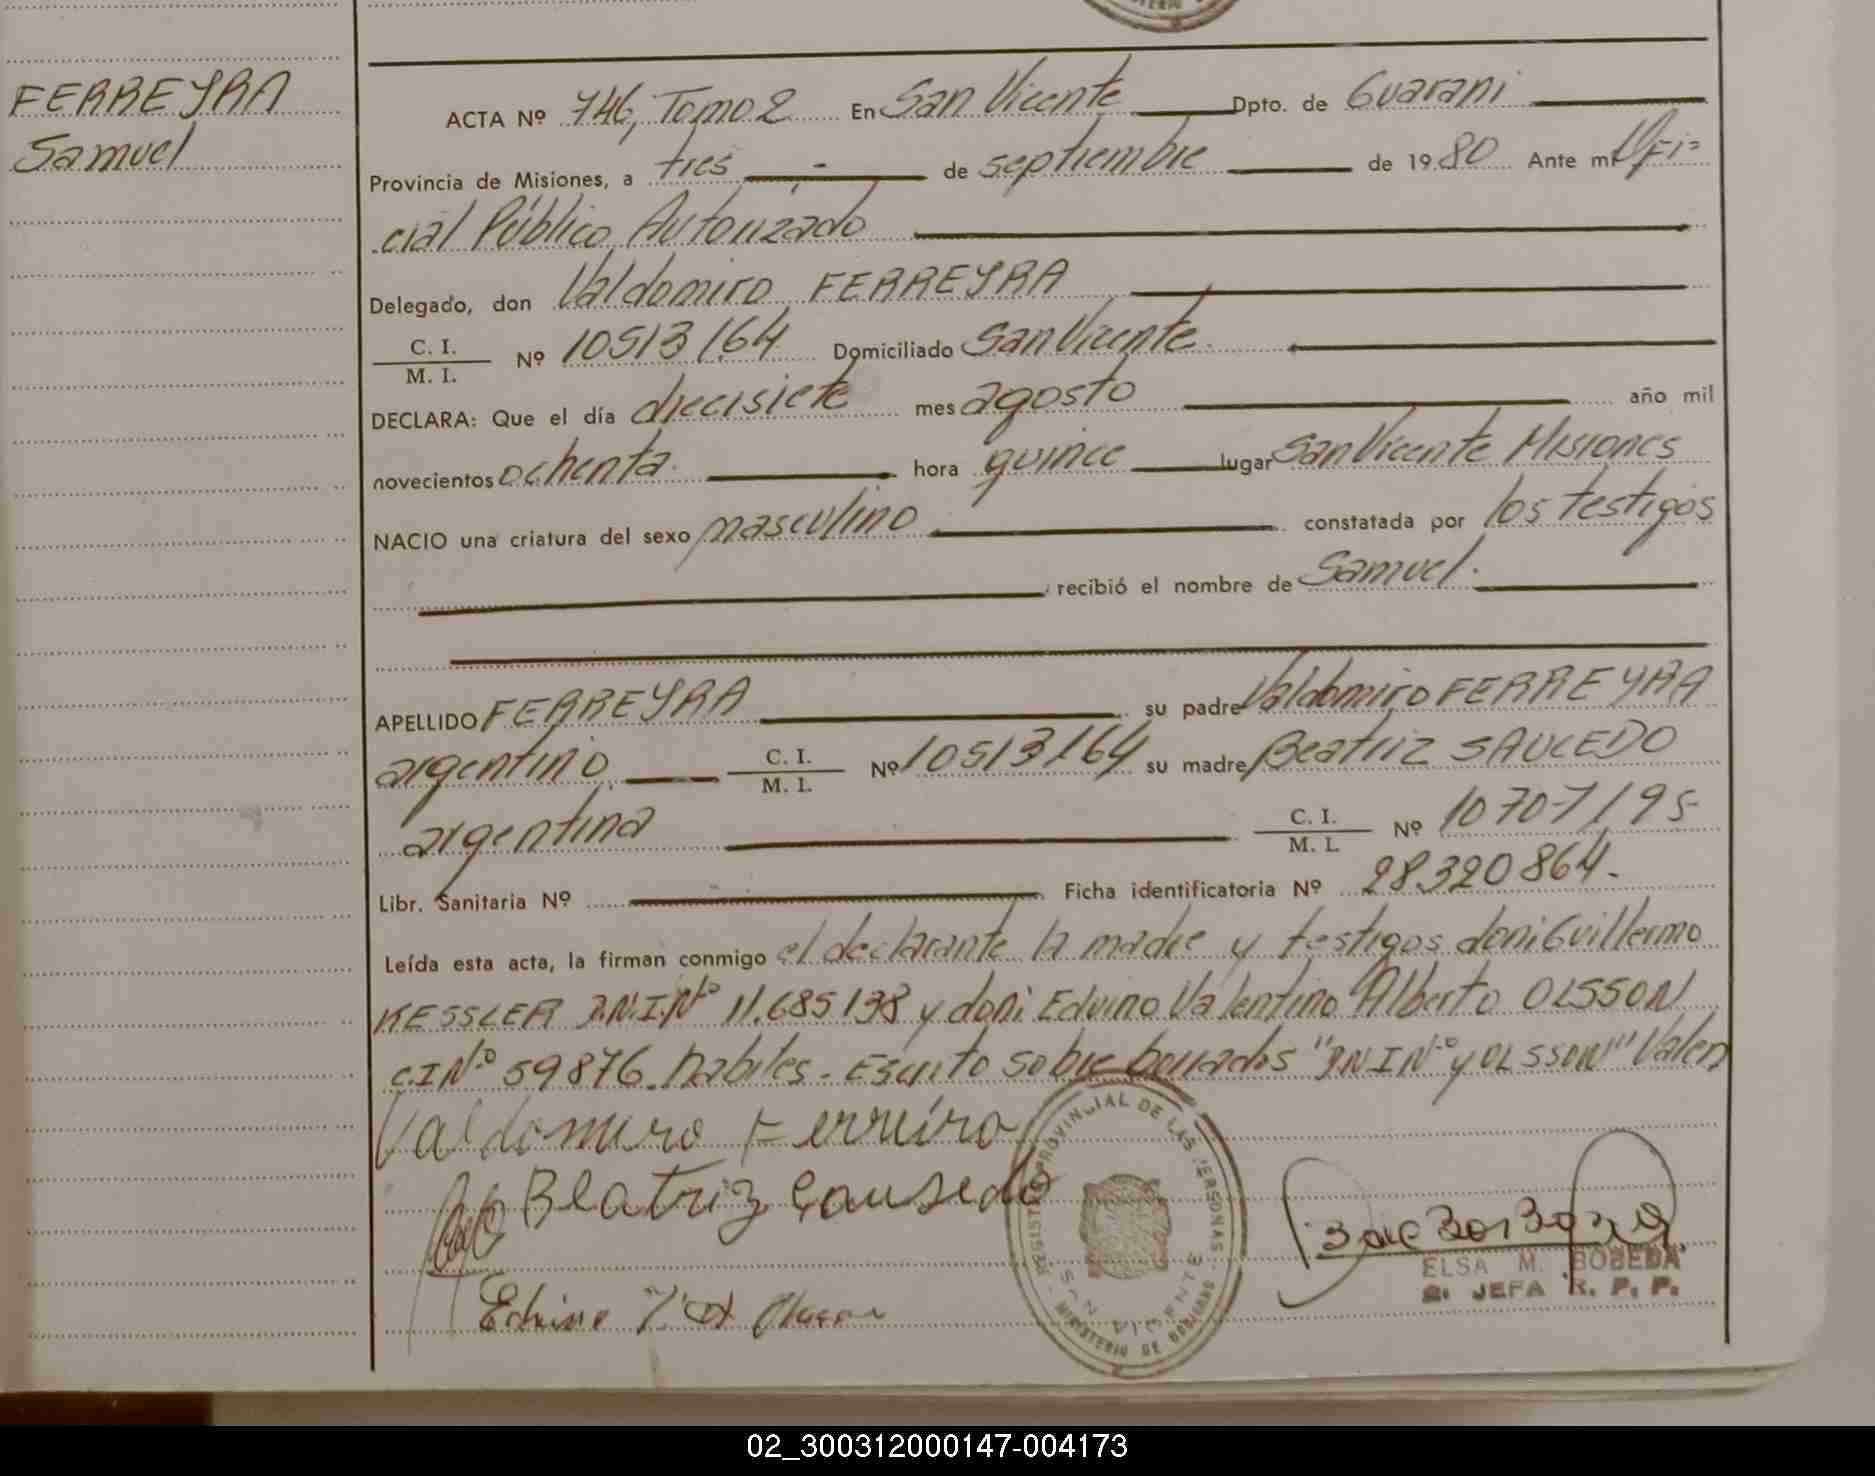 FERREYRA
Samuel
ACTA Nº 746, Tomo 2 En San Vicente Dpto. de Guarani
Provincia de Misiones, a tres de septiembre de 1980 Ante mí Ofi=
cial Público Autorizado
Delegado, don Valdomiro FERREYRA
C. I.
M. I. Nº 10513164 Domiciliado San Vicente.
DECLARA: Que el día diecisiete mes agosto año mil
novecientos ochenta. hora quince lugar San Vicente Misiones
NACIO una criatura del sexo masculino constatada por los testigos
recibió el nombre de Samuel.
APELLIDO FERREYRA su padre Valdomiro FERREYRA
argentino C. I. M. I. Nº 10513164 su madre Beatriz SAUCEDO
argentina C. I. M. I. Nº 10707195
Libr. Sanitaria Nº Ficha identificatoria Nº 28.320864.
Leída esta acta, la firman conmigo el declarante la madre y testigos don: Guillermo
KESSLER D.N.I.Nº 11.685138 y don: Edvino Valentino Alberto OLSSON
C.I Nº 59876. habiles. Escrito sobre borrados "DNI Nº y OLSSON" Valen
Valdomiro Ferreira
Beatriz Sausedo
REGISTRO PROVINCIAL DE LAS PERSONAS
SAN VICENTE
MINISTERIO DE GOBIERNO
ELSA M. BOBEDA
JEFA R. P. P.
02_300312000147-004173